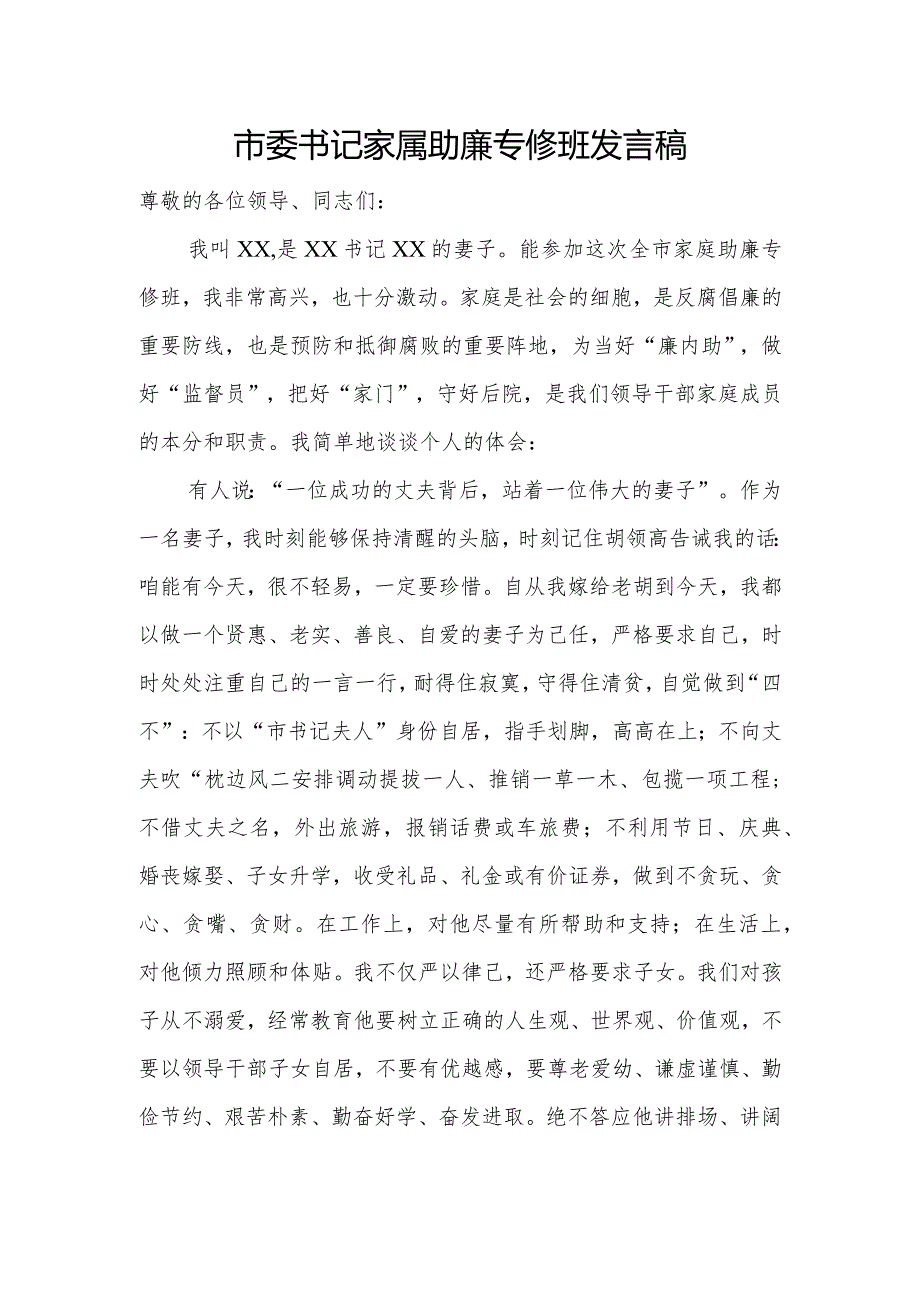 市委书记家属助廉专修班发言稿
尊敬的各位领导、同志们：
我叫 XX,是 XX 书记 XX 的妻子。能参加这次全市家庭助廉专
修班，我非常高兴，也十分激动。家庭是社会的细胞，是反腐倡廉的
重要防线，也是预防和抵御腐败的重要阵地，为当好“廉内助”，做
好“监督员”，把好“家门”，守好后院，是我们领导干部家庭成员
的本分和职责。我简单地谈谈个人的体会：
有人说：“一位成功的丈夫背后，站着一位伟大的妻子”。作为
一名妻子，我时刻能够保持清醒的头脑，时刻记住胡领高告诫我的话：
咱能有今天，很不轻易，一定要珍惜。自从我嫁给老胡到今天，我都
以做一个贤惠、老实、善良、自爱的妻子为己任，严格要求自己，时
时处处注重自己的一言一行，耐得住寂寞，守得住清贫，自觉做到“四
不”：不以“市书记夫人”身份自居，指手划脚，高高在上；不向丈
夫吹“枕边风二安排调动提拔一人、推销一草一木、包揽一项工程;
不借丈夫之名，外出旅游，报销话费或车旅费；不利用节日、庆典、
婚丧嫁娶、子女升学，收受礼品、礼金或有价证券，做到不贪玩、贪
心、贪嘴、贪财。在工作上，对他尽量有所帮助和支持；在生活上，
对他倾力照顾和体贴。我不仅严以律己，还严格要求子女。我们对孩
子从不溺爱，经常教育他要树立正确的人生观、世界观、价值观，不
要以领导干部子女自居，不要有优越感，要尊老爱幼、谦虚谨慎、勤
俭节约、艰苦朴素、勤奋好学、奋发进取。绝不答应他讲排场、讲阔